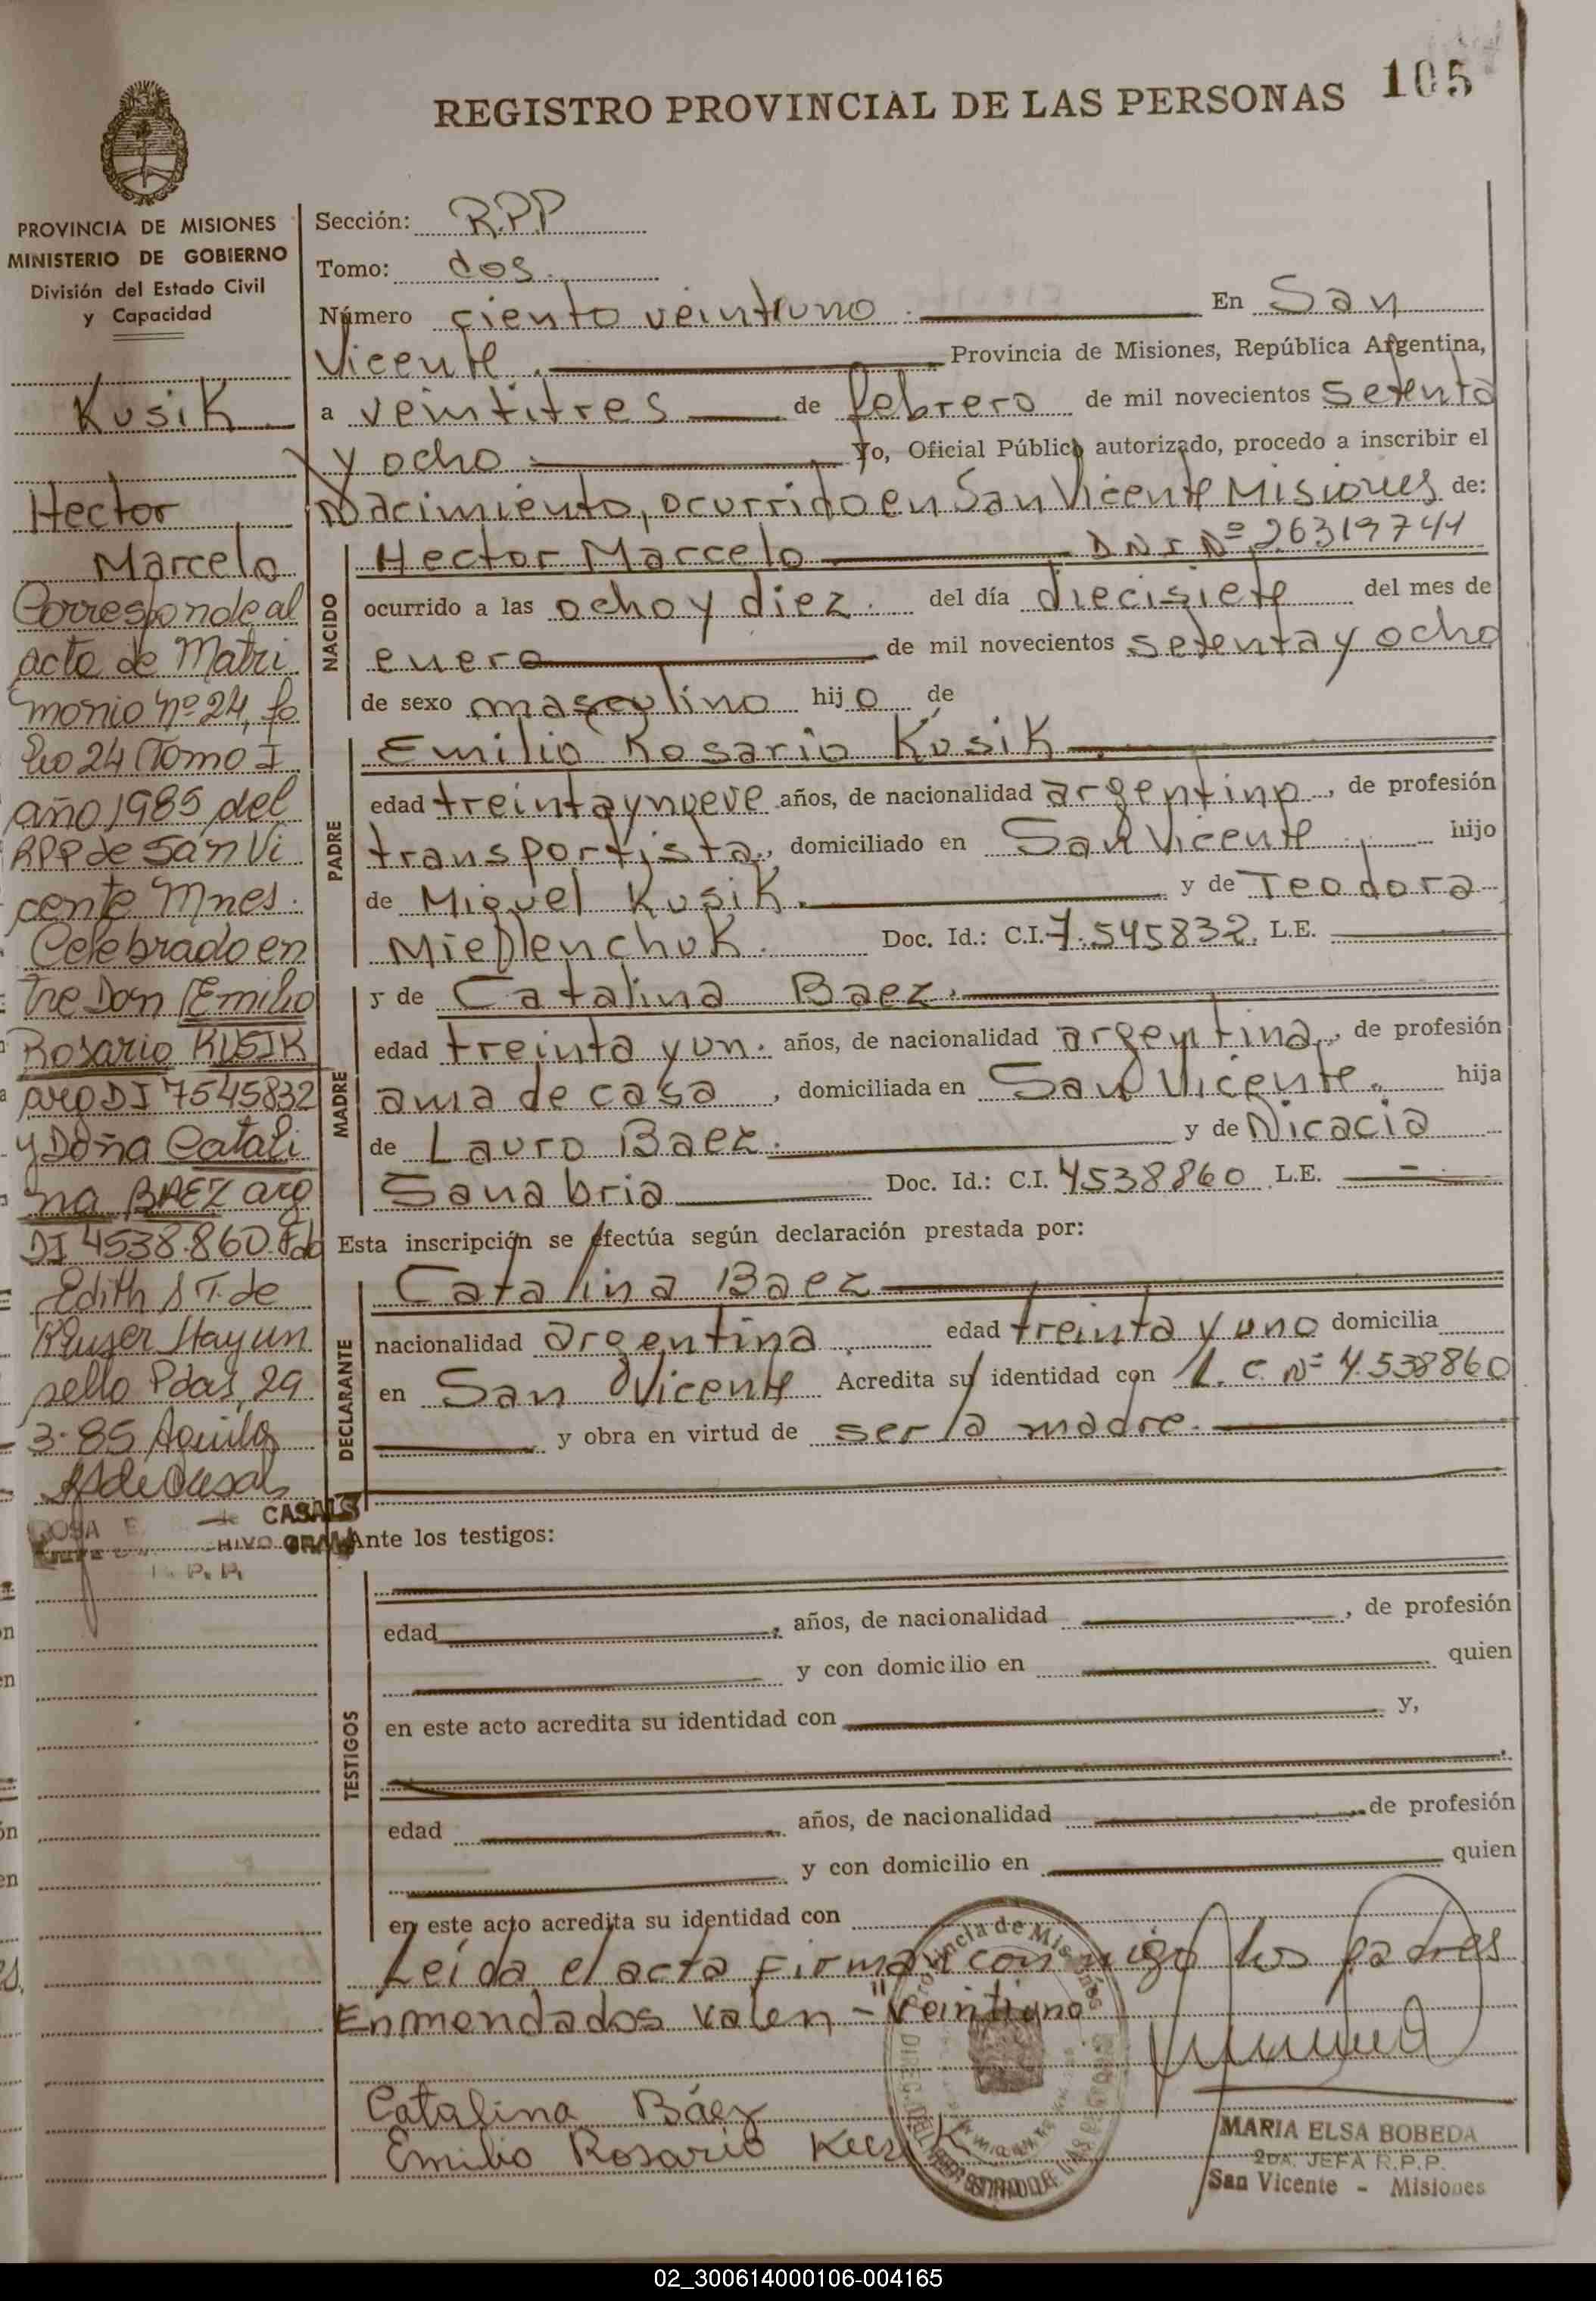 REGISTRO PROVINCIAL DE LAS PERSONAS 105
PROVINCIA DE MISIONES
MINISTERIO DE GOBIERNO
División del Estado Civil
y Capacidad
Kusik
Hector
Marcelo
Corresponde al
acto de Matri
monio nº 24, fo
lio 24 Tomo I
año 1985 del
RPP de San Vi
cente Mnes.
Celebrado en
tre Don Emilio
Rosario KUSIK
arg DI 7545832
y Doña Catali
na BAEZ arg
DI 4538.860 Fdo
Edith S T. de
Hay un
sello Pdas, 29
3-85
CASALS
R. P. P.
Sección: R.P.P
Tomo: dos.
Número ciento veintiuno. En San
Vicente. Provincia de Misiones, República Argentina,
a veintitres de febrero de mil novecientos setenta
y ocho Yo, Oficial Público autorizado, procedo a inscribir el
Nacimiento, ocurrido en San Vicente Misiones de:
NACIDO
Hector Marcelo DNI Nº 26319741
ocurrido a las ocho y diez. del día diecisiete del mes de
enero de mil novecientos setenta y ocho
de sexo masculino hijo de
PADRE
Emilio Rosario Kusik
edad treinta y nueve años, de nacionalidad argentino, de profesión
transportista, domiciliado en San Vicente hijo
de Miguel Kusik. y de Teodora
Mieflenchuk. Doc. Id.: C.I. 7.545832. L.E.
MADRE
y de Catalina Baez.
edad treinta y un. años, de nacionalidad argentina, de profesión
ama de casa, domiciliada en San Vicente. hija
de Lauro Baez. y de Nicacia
Sanabria Doc. Id.: C.I. 4538860 L.E. -
Esta inscripción se efectúa según declaración prestada por:
DECLARANTE
Catalina Baez
nacionalidad argentina edad treinta y uno domicilia
en San Vicente Acredita su identidad con L.C. Nº 4.538860
y obra en virtud de ser la madre.
Ante los testigos:
TESTIGOS
edad, años, de nacionalidad, de profesión
y con domicilio en quien
en este acto acredita su identidad con y,
edad años, de nacionalidad de profesión
y con domicilio en quien
en este acto acredita su identidad con
Leida el acta Firman conmigo los padres
Enmendados valen - "veintiuno
Provincia de Misiones
Catalina Báez
Emilio Rosario Kusik
MARIA ELSA BOBEDA
2DA. JEFA R.P.P.
San Vicente - Misiones
02_300614000106-004165